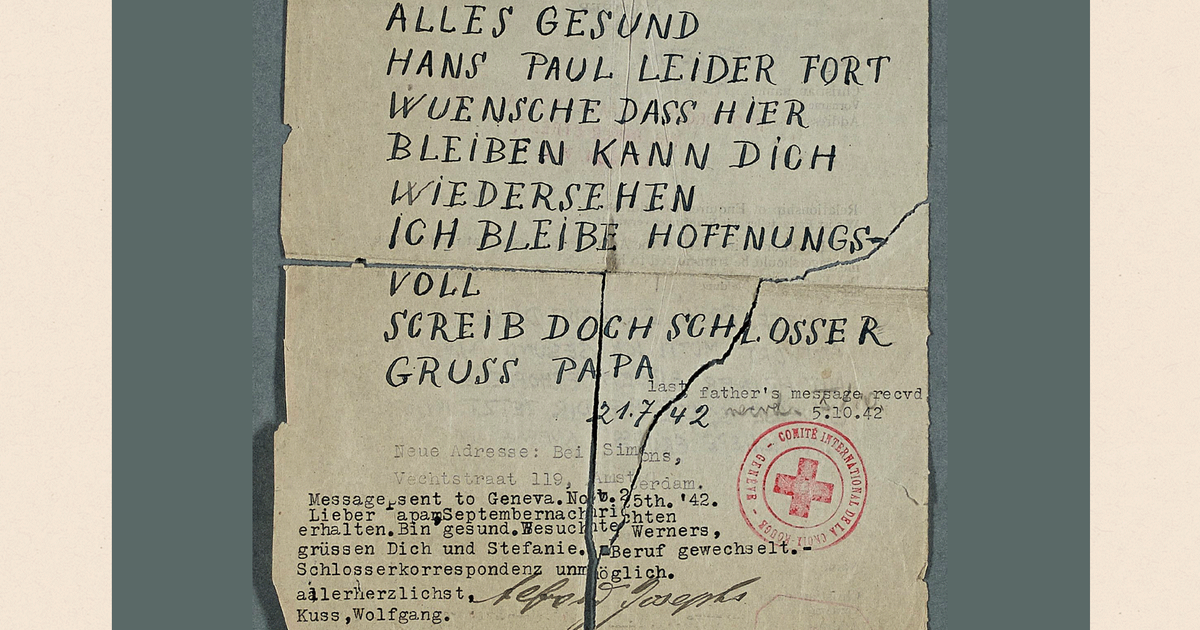 ALLES GESUND
HANS PAUL LEIDER FORT
WUENSCHE DASS HIER
BLEIBEN KANN DICH
WIEDERSEHEN
ICH BLEIBE HOFFNUNGS-
VOLL
SCREIB DOCH SCHLOSSER
GRUSS PAPA
last father's message recvd
21.7.42
5.10.42
Neue Adresse: Bei Simons,
Vechtstraat 119, Amsterdam.
COMITÉ INTERNATIONAL DE LA CROIX-ROUGE - GENÈVE -
Message sent to Geneva.Nov.25th. '42.
Lieber Papa,Septembernachrichten
erhalten.Bin gesund.Besuchte Werners,
grüssen Dich und Stefanie. Beruf gewechselt.-
Schlosserkorrespondenz unmöglich.
allerherzlichst,
Alfred Josephs
Kuss,Wolfgang.